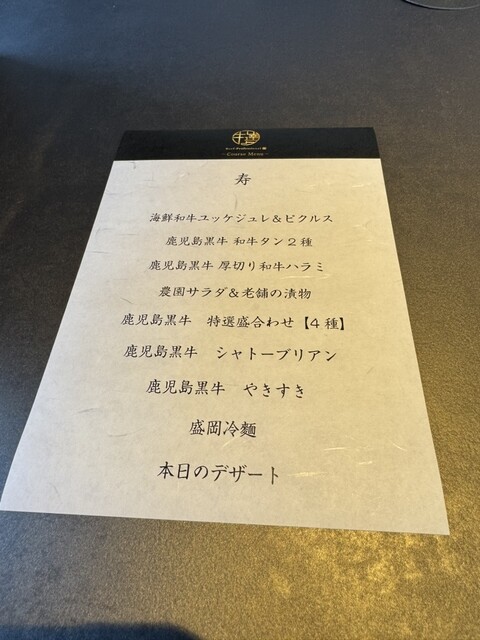 牛達
Beef Professional
~Course Menu~
寿
海鮮和牛ユッケジュレ&ピクルス
鹿児島黒牛 和牛タン2種
鹿児島黒牛 厚切り和牛ハラミ
農園サラダ&老舗の漬物
鹿児島黒牛 特選盛合わせ【4種】
鹿児島黒牛 シャトーブリアン
鹿児島黒牛 やきすき
盛岡冷麺
本日のデザート